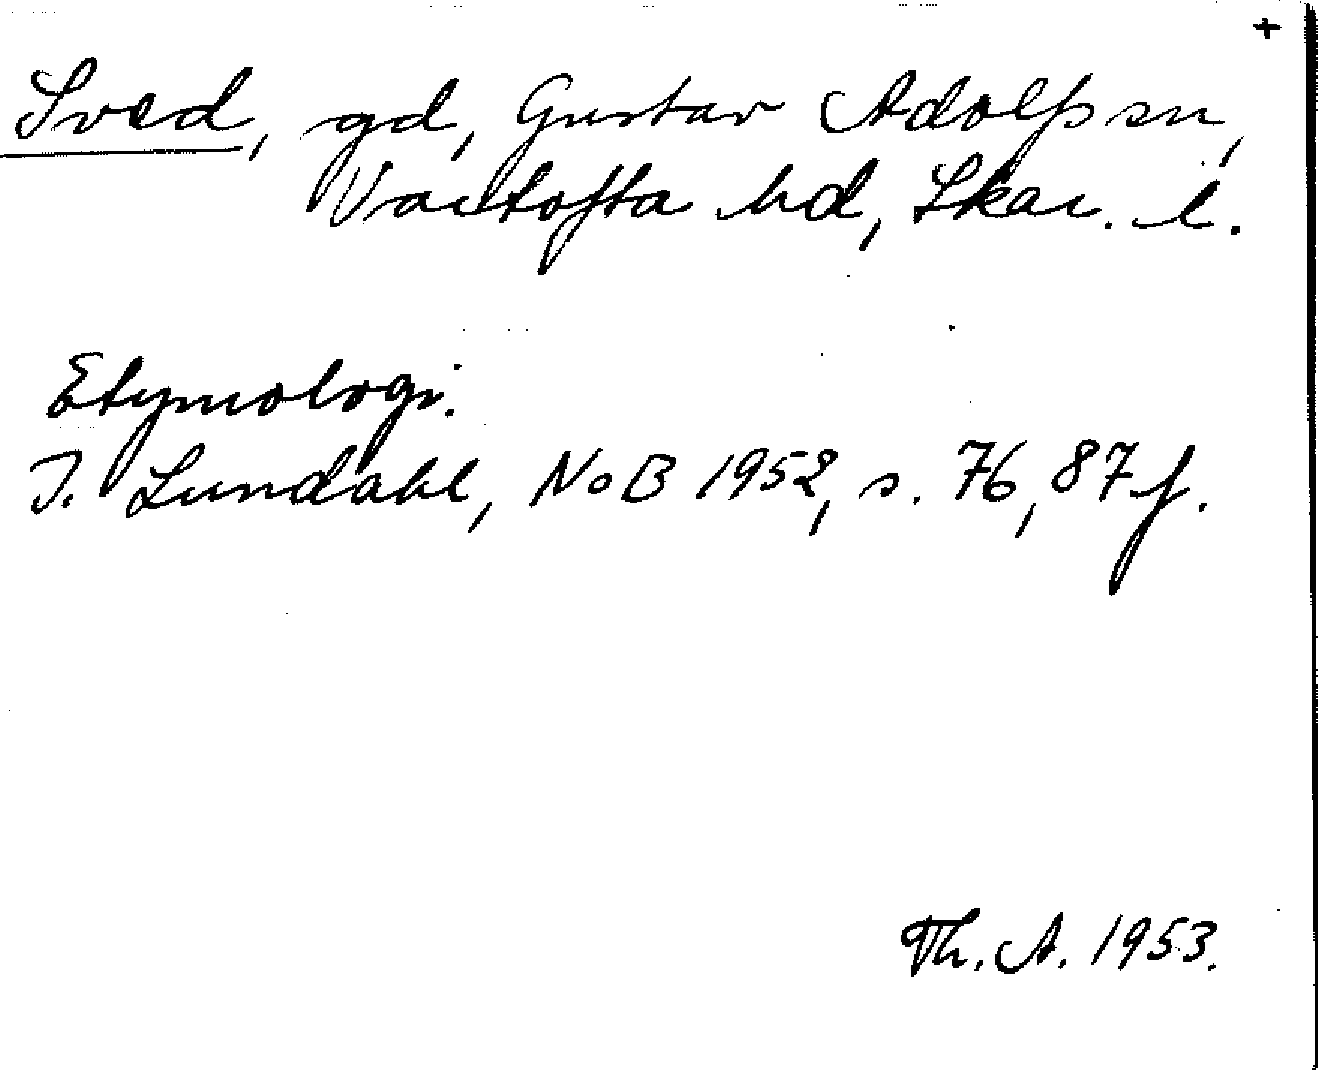 +
Sved, gd, Gustav Adolfs sn,
Vartofta hd, Skar. l.
Etymologi.
I. Lundahl, NoB 1952, s. 76, 87 f.
Th. A. 1953.